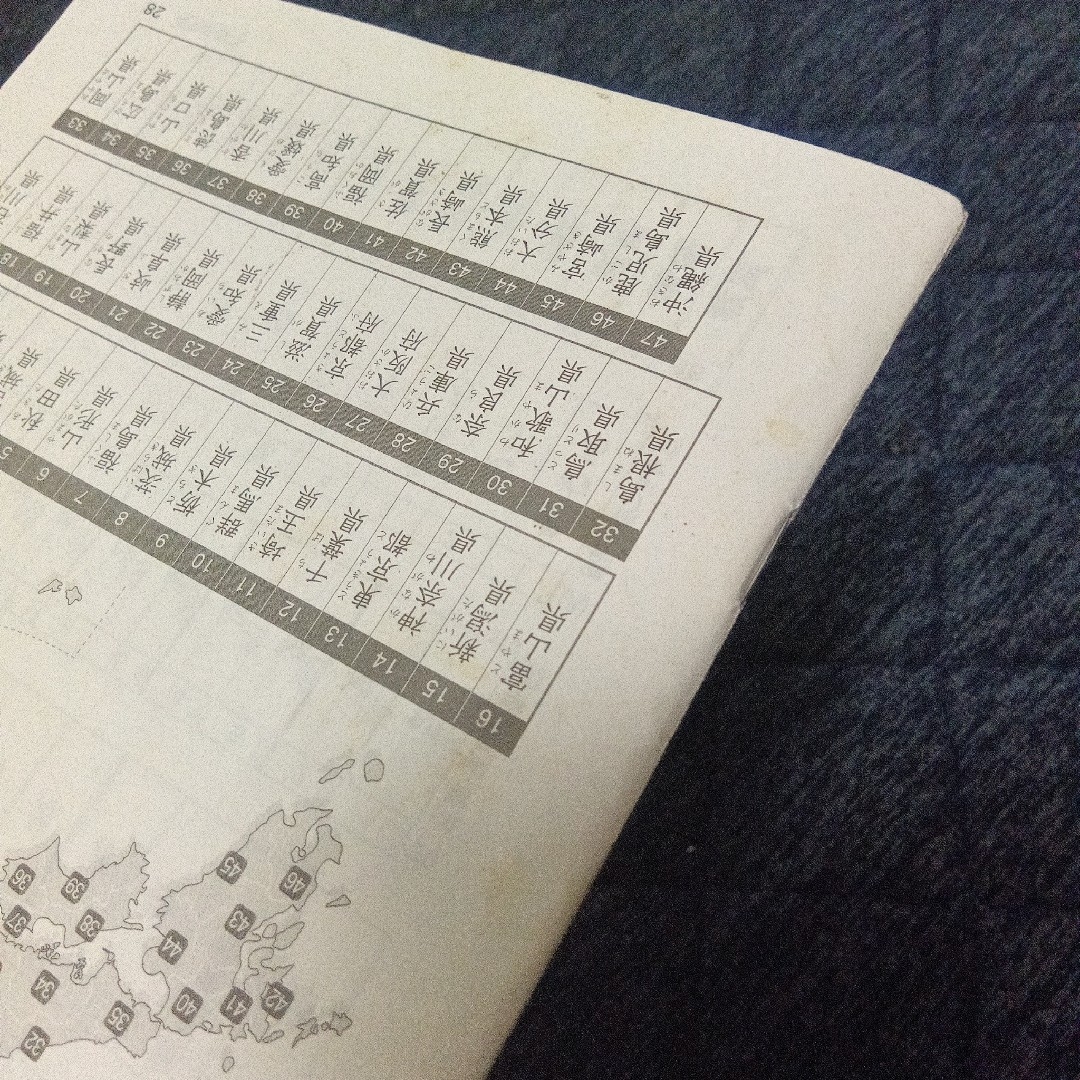 32
35
40
41
42
34
44
43
37
38
36
39
45
46
城県
5 秋田県
6 山形県
7 福島県
8 茨城県
9 栃木県
10 群馬県
11 埼玉県
12 千葉県
13 東京都
14 神奈川県
15 新潟県
16 富山県
川県
18 福井県
19 山梨県
20 長野県
21 岐阜県
22 静岡県
23 愛知県
24 三重県
25 滋賀県
26 京都府
27 大阪府
28 兵庫県
29 奈良県
30 和歌山県
31 鳥取県
32 島根県
33 岡山県
34 広島県
35 山口県
36 徳島県
37 香川県
38 愛媛県
39 高知県
40 福岡県
41 佐賀県
42 長崎県
43 熊本県
44 大分県
45 宮崎県
46 鹿児島県
47 沖縄県
28